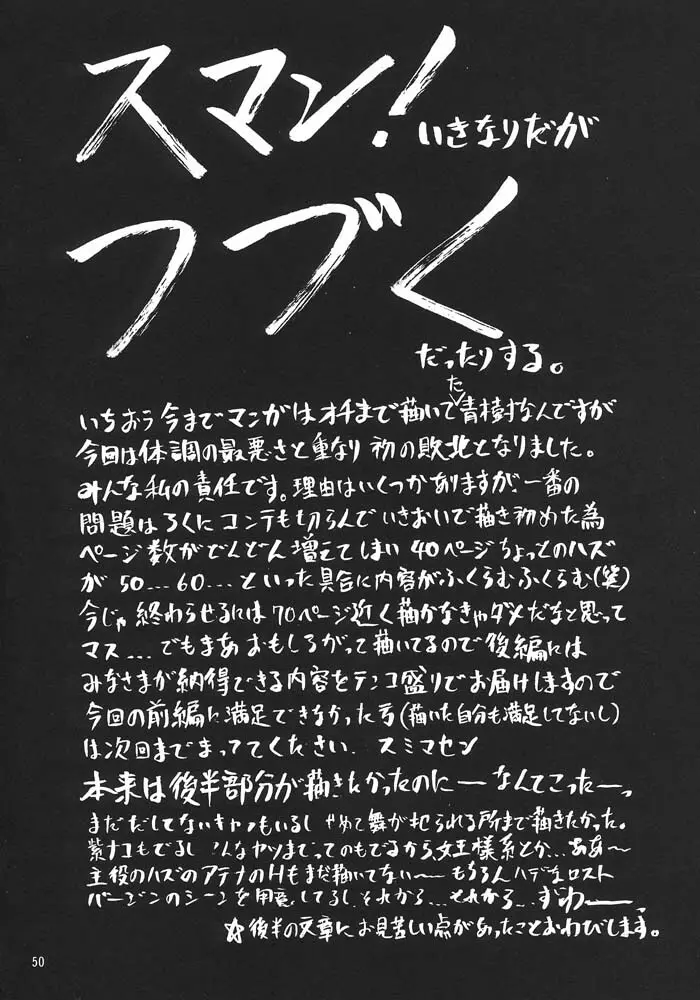 スマン! いきなりだが
つづく
だったりする。
いちおう今までマンガはオチまで描いてた青樹村なんですが
今回は体調の最悪さと重なり初の敗北となりました。
みんな私の責任です。理由はいくつかありますが一番の
問題はろくにコンテも切らんでいきおいで描き初めた為
ページ数がどんどん増えてしまい 40ページちょっとのハズ
が 50...60...といった具合に内容がふくらむふくらむ(笑)
今じゃ終わらせるには70ページ近く描かなきゃダメだなと思って
マス...でもまあおもしろがって描いてるので後編には
みなさまが納得できる内容をテンコ盛りでお届けしますので
今回の前編に満足できなかった方(描いた自分も満足してないし)
は次回までまっててください. スミマセン
本来は後半部分が描きたかったのにーなんてこったーっ
まだだしてないキャラもいるし せめて舞が犯られる所まで描きたかった。
紫ナコもでるし こんなヤツまでってのもでるから女王様系とか...ああ〜
主役のハズのアテナのHもまだ描いてない〜 もちろんハデなロスト
バージンのシーンを用意してるし それから...それから...ずわーーっ
☆後半の文章にお見苦しい点があったことおわびします。
50